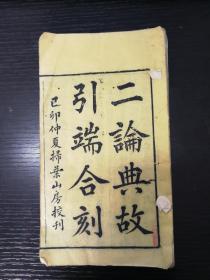 二論典故
引端合刻
己卯仲夏掃葉山房校刊